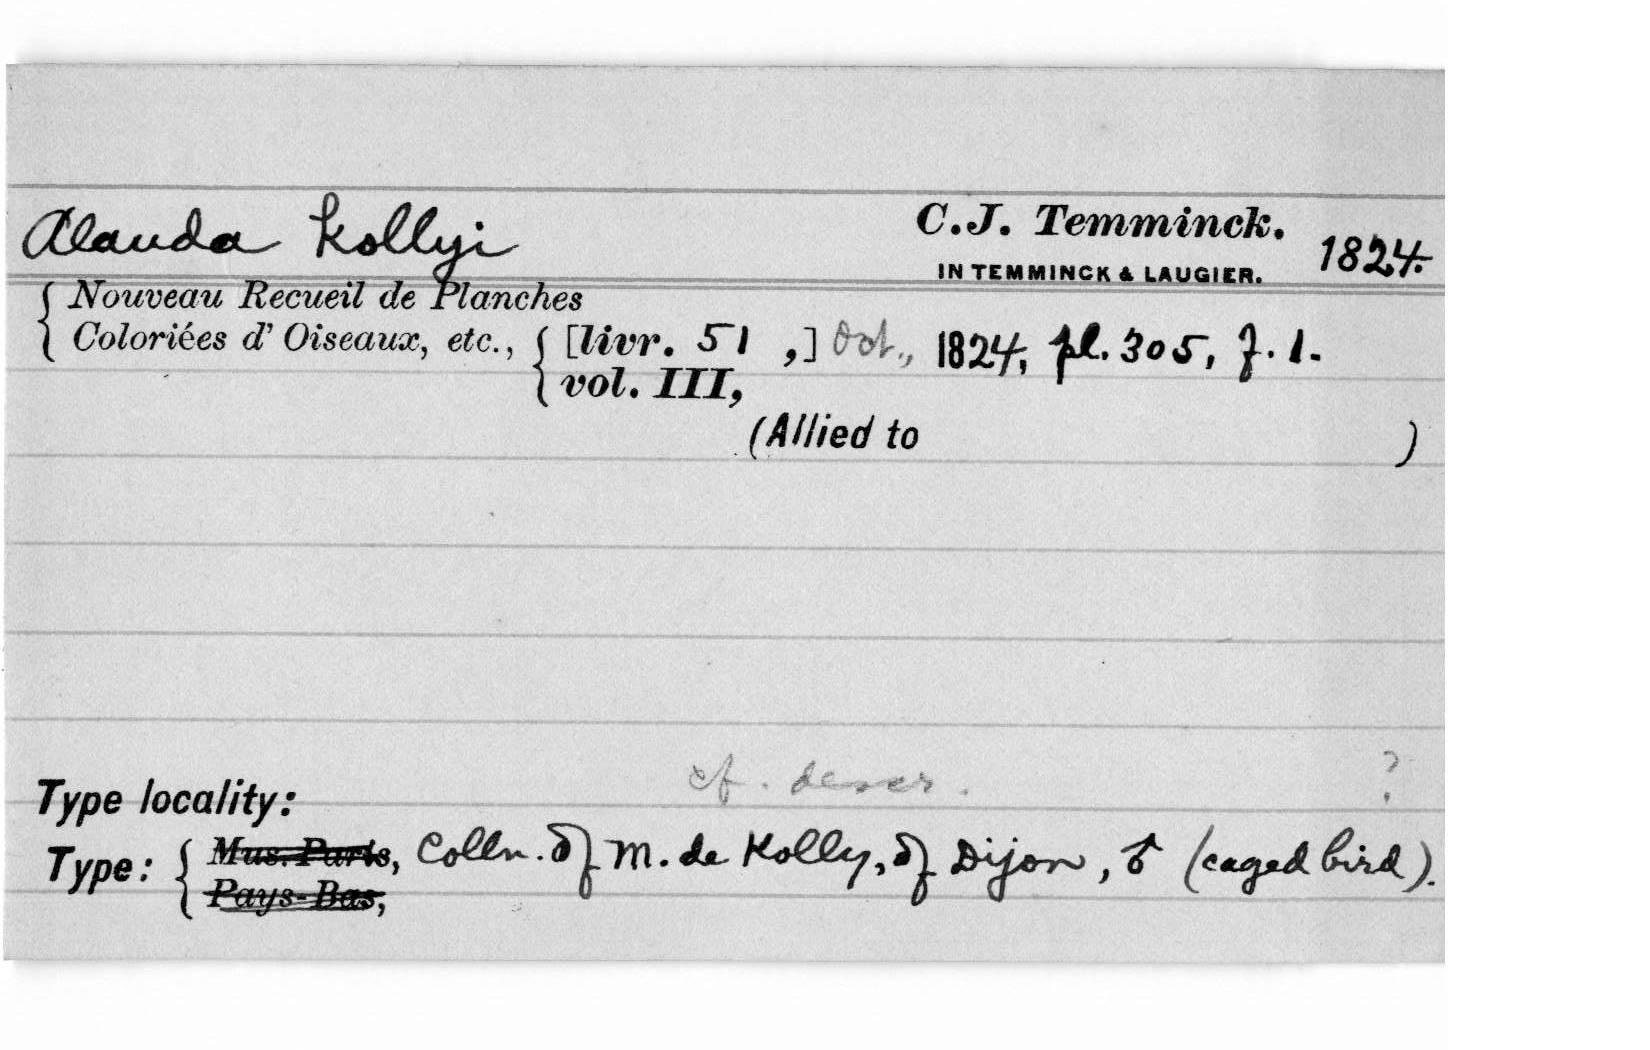 Alauda Kollyi C.J. Temminck. 1824.
IN TEMMINCK & LAUGIER.
{ Nouveau Recueil de Planches
Coloriées d' Oiseaux, etc., { [livr. 51 ,] Oct., 1824, pl. 305, f. 1.
vol. III,
(Allied to )
cf. descr. ?
Type locality:
Type: { Mus. Paris, Colln. of M. de Kolly, of Dijon, ♂ (caged bird).
Pays-Bas,